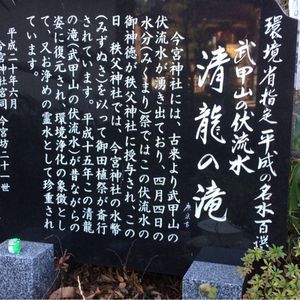 環境省指定「平成の名水百選」
武甲山の伏流水
清龍の滝
今宮神社には、古来より武甲山の
伏流水が湧き出ており、四月四日の
水分(みくまり)祭ではこの伏流水の
御神徳が秩父神社に授与され、この
日、秩父神社では、今宮神社の水幣
(みずぬさ)を以って御田植祭が斎行
されています。平成十五年この清龍
の滝(武甲山の伏流水)が昔ながらの
姿に復元され、環境浄化の象徴とし
て、又お浄めの霊水として珍重され
ています。
平成二十一年六月
今宮神社宮司 今宮坊二十一世